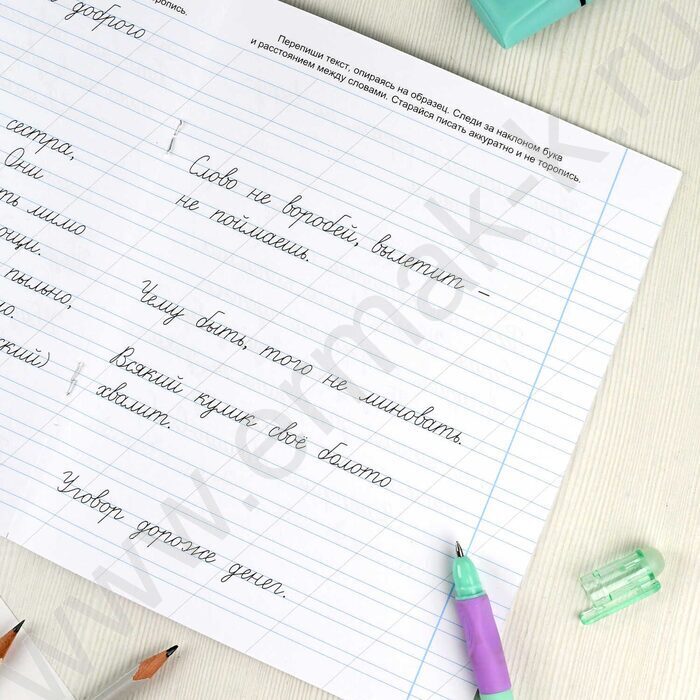 торопись.
доброго
сестра,
Они
ть мимо
ощи.
пыльно,
но.
ский)
Перепиши текст, опираясь на образец. Следи за наклоном букв
и расстоянием между словами. Старайся писать аккуратно и не торопись.
Слово не воробей, вылетит –
не поймаешь.
Чему быть, того не миновать.
Всякий кулик своё болото
хвалит.
Уговор дороже денег.
www.ermak-k.ru